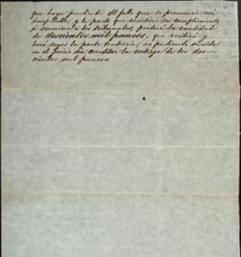 que haya pendiente. El fallo que se pronuncie será
inapelable, y la parte que resista su cumplimiento
ó recurriere á los tribunales, perderá la cantidad
de doscientos mil francos, que recibirá y
hará suyos la parte contraria, no pudiendo
en el juicio sin acreditar la entrega de los dos-
cientos mil francos.